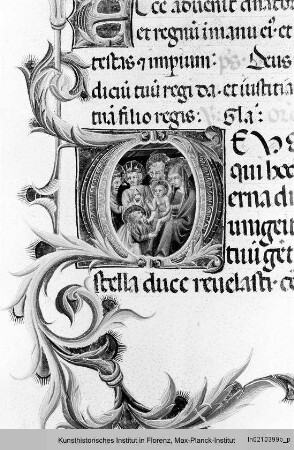 cce aduenit dñator
et regnũ i manu eiꝰ et
testas ⁊ imperium: ps Deus
diciũ tuũ regi da· et iustitiã
tuã filio regis: Gla:
EVS
qui hod
erna di
unigeit
tuũ gẽt
stella duce reuelasti·
Kunsthistorisches Institut in Florenz, Max-Planck-Institut
ln0210399b_p